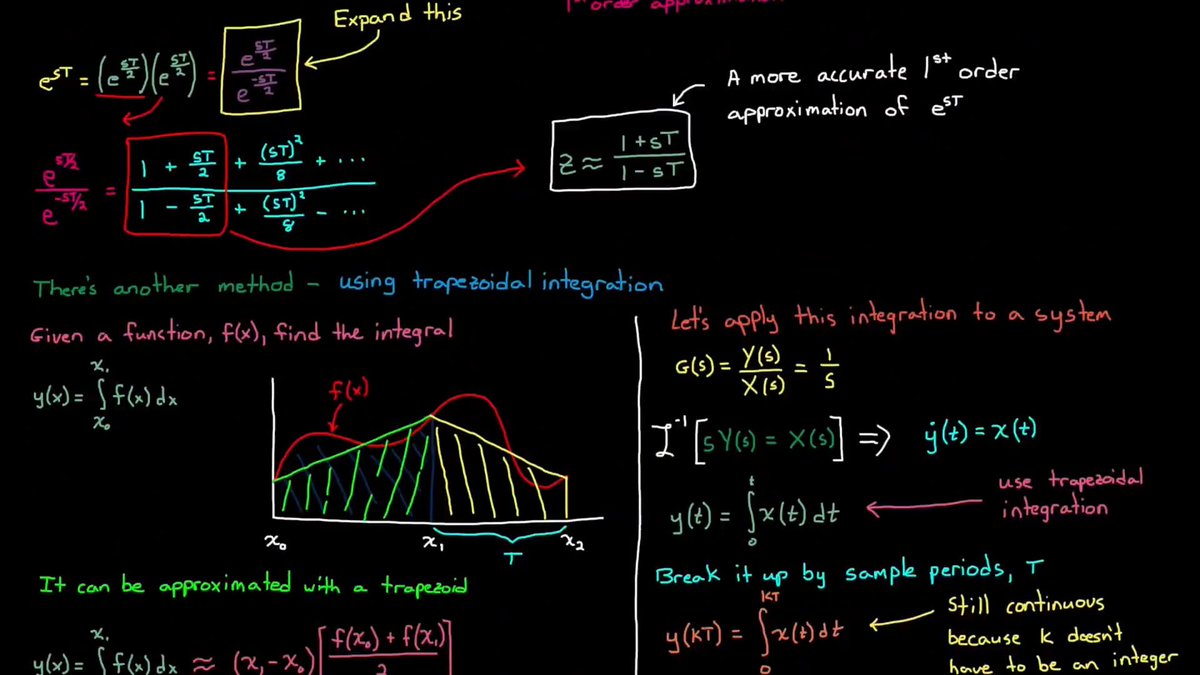 1st order approximation
Expand this
e^sT = (e^sT/2)(e^sT/2) = e^sT/2 / e^-sT/2
A more accurate 1st order
approximation of e^sT
e^sT/2 / e^-sT/2 = (1 + sT/2 + (sT)²/8 + ...) / (1 - sT/2 + (sT)²/8 - ...)
z ≈ (1 + sT) / (1 - sT)
There's another method - using trapezoidal integration
Given a function, f(x), find the integral
y(x) = ∫x₀x₁ f(x) dx
f(x)
x₀ x₁ x₂
T
It can be approximated with a trapezoid
y(x) = ∫x₁ f(x) dx ≈ (x₁ - x₀) [(f(x₀) + f(x₁)) / 2]
Let's apply this integration to a system
G(s) = Y(s) / X(s) = 1 / s
ℒ⁻¹ [sY(s) = X(s)] ⇒ ẏ(t) = x(t)
y(t) = ∫0t x(t) dt
use trapezoidal
integration
Break it up by sample periods, T
y(kT) = ∫0kT x(t) dt
Still continuous
because k doesn't
have to be an integer